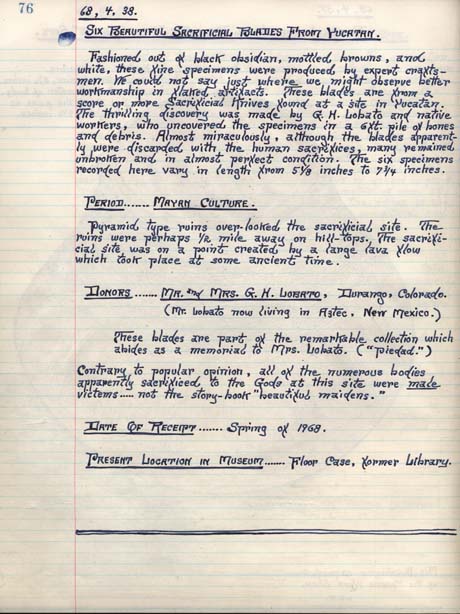 76
68, 4. 38.
Six Beautiful Sacrificial Blades From Yucatan.
Fashioned out of black obsidian, mottled browns, and
white, these fine specimens were produced by expert crafts-
men. We could not say just where we might observe better
workmanship in flaked artifacts. These blades are from a
score or more Sacrificial Knives found at a site in Yucatan.
The thrilling discovery was made by G. H. Lobato and native
workers, who uncovered the specimens in a 6ft. pile of bones
and debris. Almost miraculously, although the blades apparent-
ly were discarded with the human sacrifices, many remained
unbroken and in almost perfect condition. The six specimens
recorded here vary in length from inches to 7 3/4 inches.
Period....... Mayan Culture.
Pyramid type ruins over-looked the sacrificial site. The
ruins were perhaps 1/2 mile away on hill-tops. The sacrifi-
cial site was on a point created by a large lava flow
which took place at some ancient time.
Donors ....... Mr. and Mrs. G. H. Lobato, Durango, Colorado.
(Mr. Lobato now living in Aztec, New Mexico.)
These blades are part of the remarkable collection which
abides as a memorial to Mrs. Lobato. ("Piedad.")
Contrary to popular opinion, all of the numerous bodies
apparently sacrificed to the Gods at this site were male
victims..... not the story-book "beautiful maidens."
Date Of Receipt ....... Spring of 1968.
Present Location in Museum ....... Floor Case, former Library.